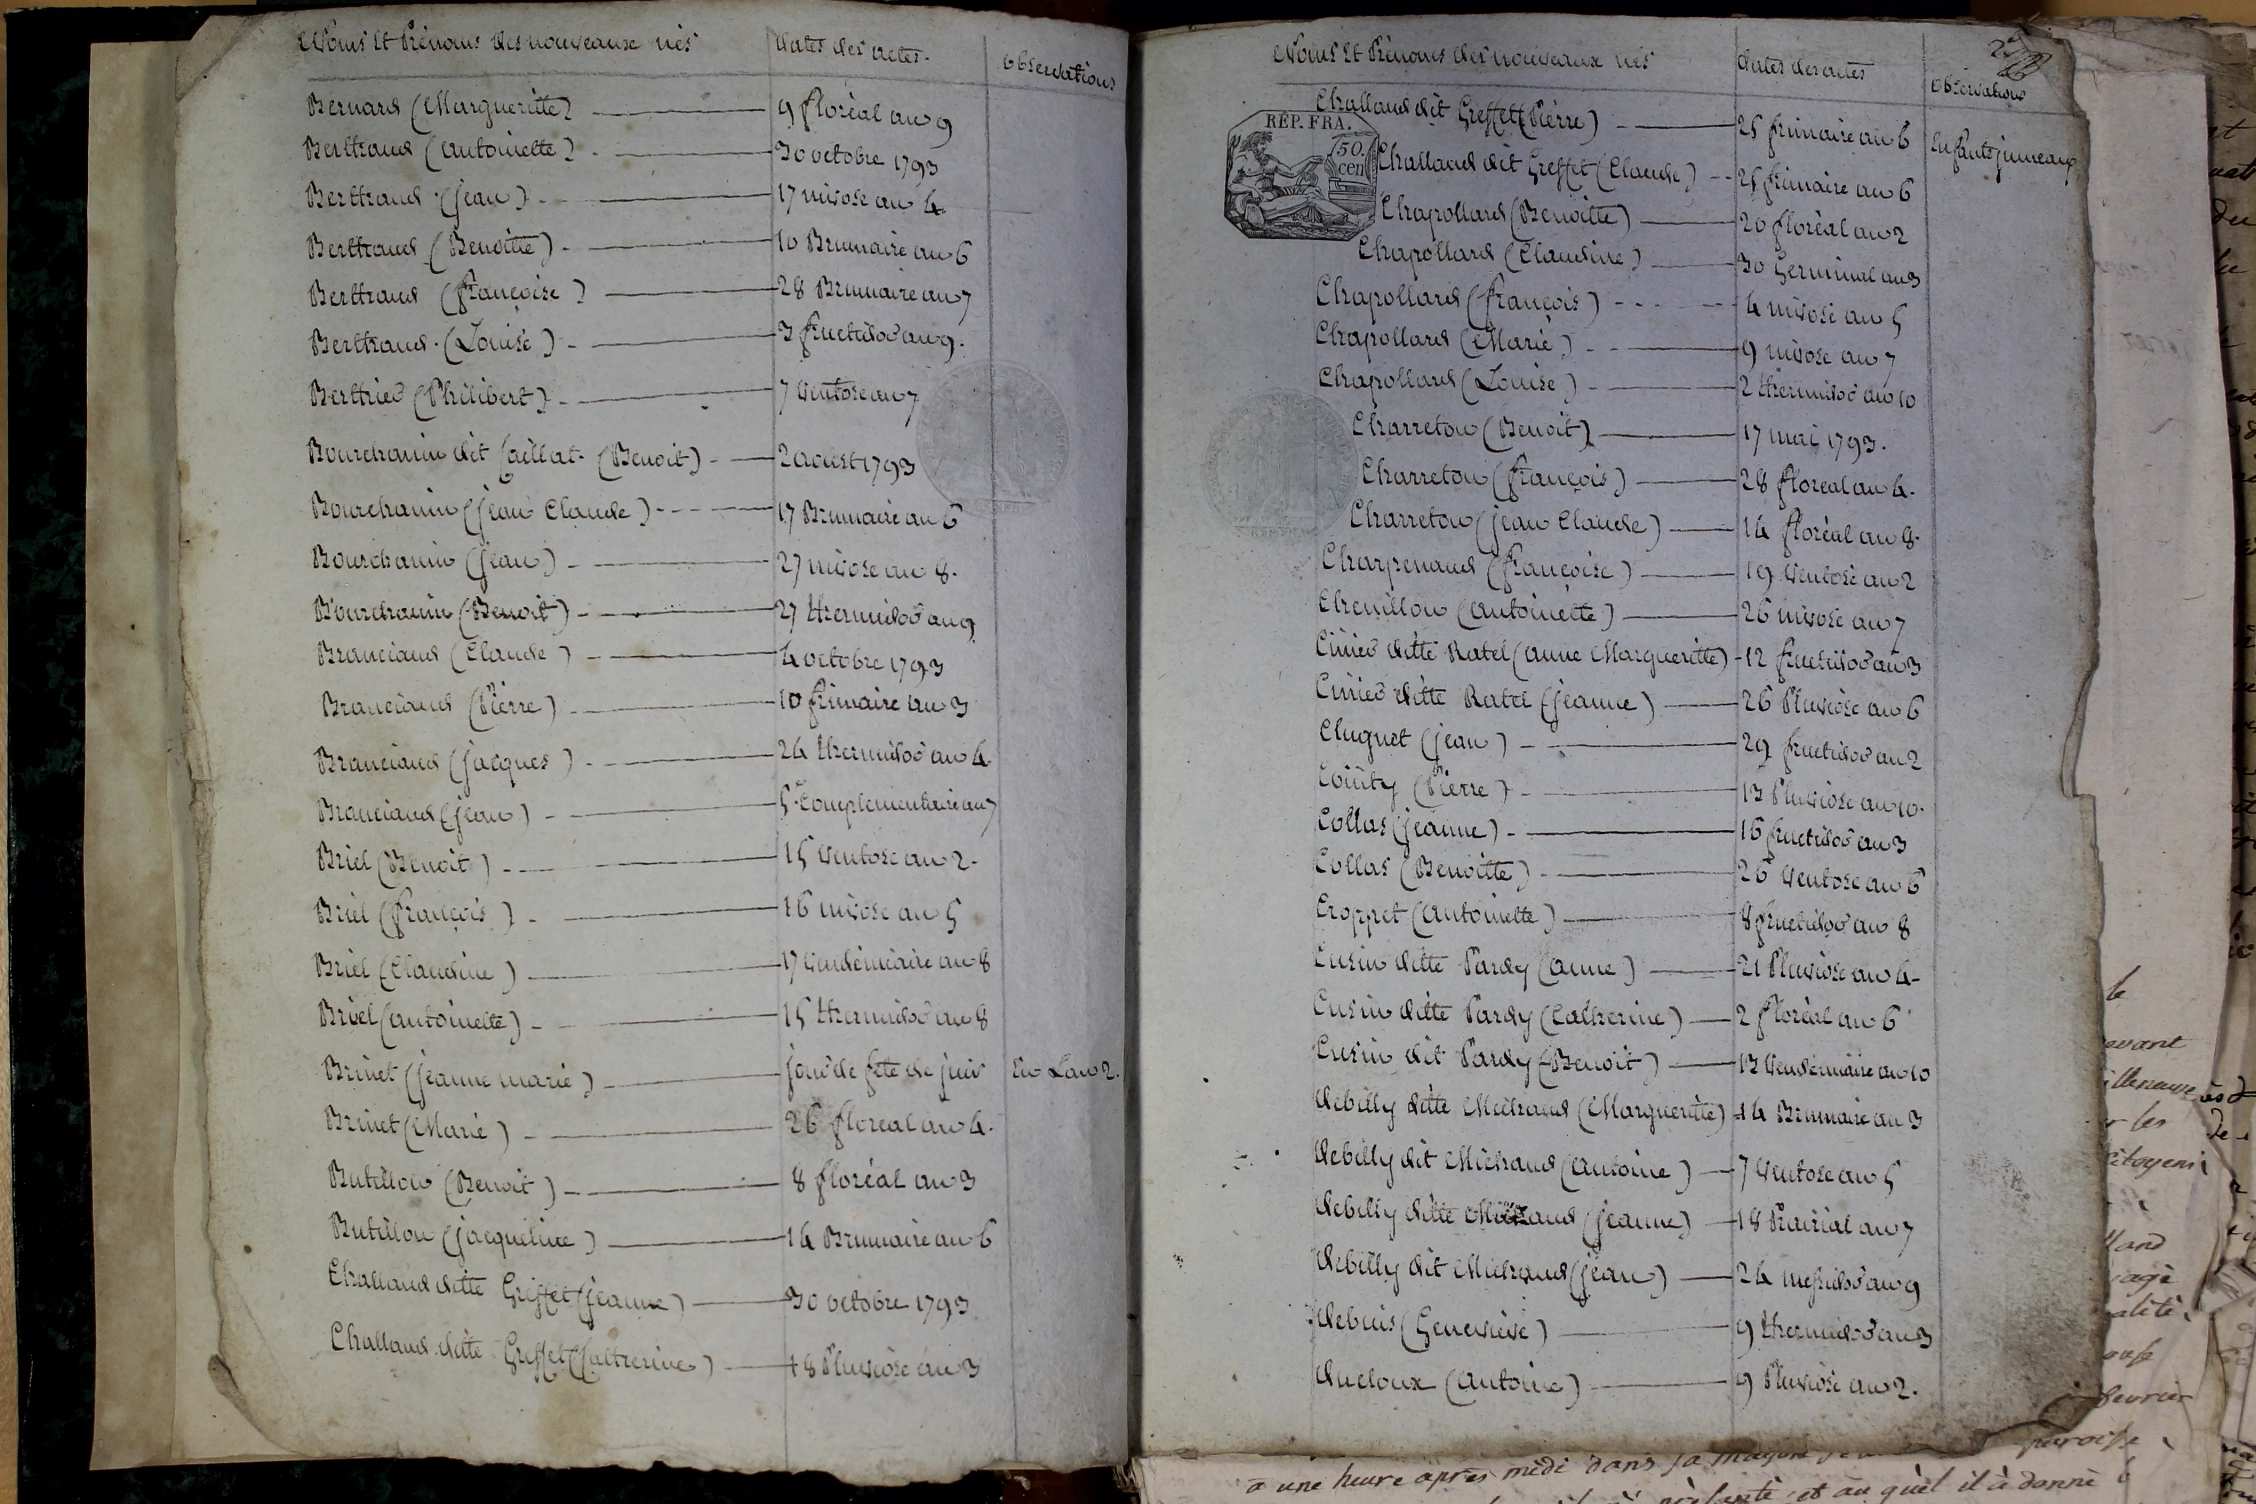 Noms et Prénoms des nouveaux nés
dates des actes.
observations
Bernard (Margueritte) 9 floréal an 9
Berthaud (antoinette) 30 octobre 1793
Berthaud (jean) 17 nivose an 4
Berthaud (Benoitte) 10 Brumaire an 6
Berthaud (françoise) 28 Brumaire an 7
Berthaud (Louise) 3 fructidor an 9.
Berthier (Philibert) 7 Ventose an 7
Bourchanin dit (Benoit) 2 aoust 1793
Bourchanin (jean Claude) 17 Brumaire an 6
Bourchanin (jean) 27 nivose an 8.
Bourchanin (Benoit) 27 thermidor an 9
Branciaud (Claude) 4 octobre 1793
Branciaud (Pierre) 10 frimaire an 3
Branciaud (jacques) 24 thermidor an 4
Branciaud (jean) 5e Complementaire an 7
Briel (Benoit) 15 Ventose an 2.
Briel (françois) 16 nivose an 5
Briel (Claudine) 17 Vendémiaire an 8
Briel (antoinette) 15 thermidor an 8
Brivet (jeanne marie) jour de fete de juin En Lan 2.
Brivet (Marie) 26 floreal an 4.
Butillon (Benoit) 8 floréal an 3
Butillon (jacqueline) 14 Brumaire an 6
Challand ditte Greffet (jeanne) 30 octobre 1793
Challand ditte Greffet (Catherine) 18 Pluviôse an 3
Noms et Prénoms des nouveaux nés
dates des actes
observations
RÉP. FRA.
50.
cen
Challand dit Greffet (Pierre) 25 frimaire an 6 Enfants jumeaux
Challand dit Greffet (Claude) 25 frimaire an 6
Chapollard (Benoitte) 20 floréal an 2
Chapollard (Claudine) 30 Germinal an 3
Chapollard (françois) 4 nivose an 5
Chapollard (Marie) 9 nivose an 7
Chapollard (Louise) 2 thermidor an 10
Charreton (Benoit) 17 mai 1793.
Charreton (françois) 28 floreal an 4.
Charreton (jean Claude) 14 floréal an 8.
Charpenaud (françoise) 19 Ventose an 2
Chevillon (antoinette) 26 nivose an 7
Cinier ditte Ratel (anne Margueritte) 12 fructidor an 3
Cinier ditte Ratel (jeanne) 26 Pluviôse an 6
Cluguet (jean) 29 fructidor an 2
Cointy (Pierre) 13 Pluviôse an 10.
Collas (jeanne) 16 fructidor an 3
Collas (Benoitte) 26 Ventose an 6
Croppet (antoinette) 8 fructidor an 8
Cusin ditte Pardy (anne) 21 Pluviôse an 4
Cusin ditte Pardy (Catherine) 2 floréal an 6
Cusin dit Pardy (Benoit) 13 Vendemiaire an 10
debilly ditte Michaud (Margueritte) 14 Brumaire an 3
debilly dit Michaud (antoine) 7 Ventose an 5
debilly ditte Michaud (jeanne) 18 Prairial an 7
debilly dit Michaud (jean) 24 messidor an 9
debuis (Geneviéve) 9 thermidor an 3
ducloux (antoine) 9 Pluviôse an 2.
avant
les
citoyens
fevrier
a une heure apres midi dans sa maison
et au quel il a donné